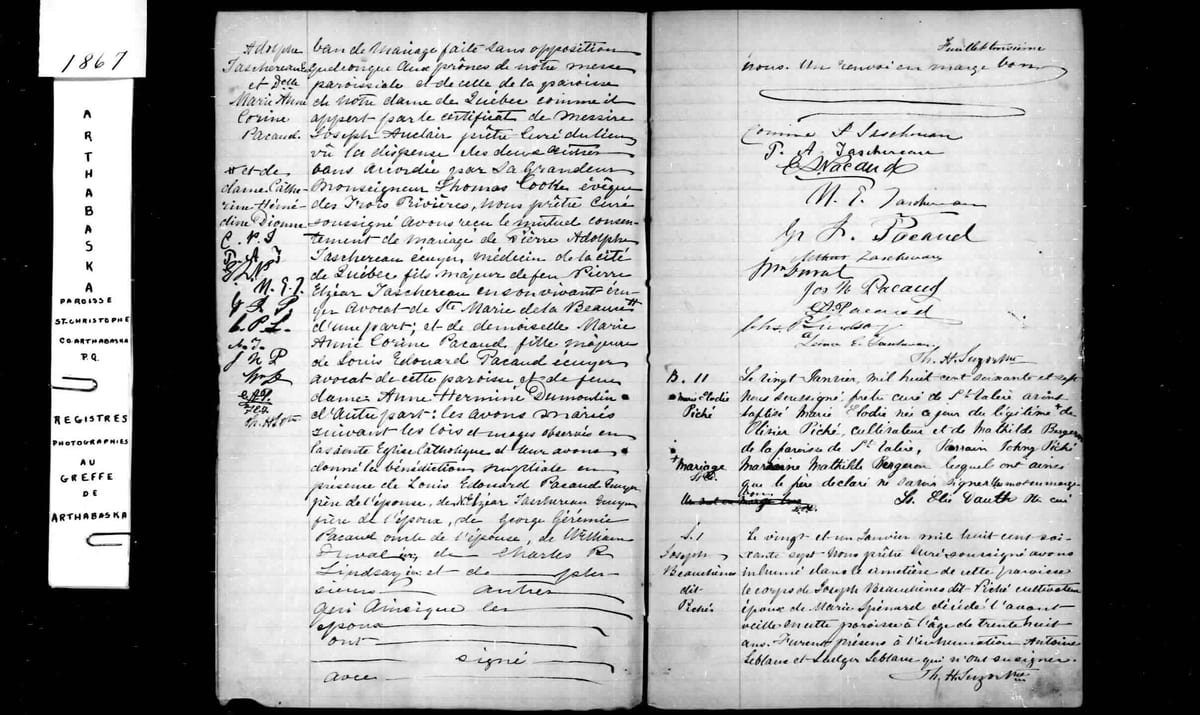 1867
ARTHABASKA
PAROISSE
ST. CHRISTOPHE
CO. ARTHABASKA
P.Q.
REGISTRES
PHOTOGRAPHIES
AU
GREFFE
DE
ARTHABASKA
Adolphe
Taschereau
et Delle
Marie Anne
Corine
Pacaud
et de
dame Cathe-
rine Héné-
dine Dionne
C. P. T
P. A T
M. E. T.
J N P
ban de Mariage faite sans opposition
quelconque aux prônes de notre messe
paroissiale et de celle de la paroisse
de Notre dame de Québec comme il
appert par le certificat de Messire
Joseph Auclair prêtre Curé du lieu
vû la dispense des deux autres
bans accordée par Sa Grandeur
Monseigneur Thomas Cooke évêque
des Trois Rivières, Nous prêtre Curé
soussigné avons reçu le mutuel consen-
tement de mariage de Pierre Adolphe
Taschereau écuyer, médecin de la cité
de Québec fils majeur de feu Pierre
Elzéar Taschereau en son vivant écu-
yer Avocat de Ste Marie de la Beauce
d'une part; et de demoiselle Marie
Anne Corine Pacaud fille majeure
de Louis Edouard Pacaud écuyer
avocat de cette paroisse, et de feue
dame Anne Hermine Dumoulin
d'Autre part: les avons mariés
suivant les lois et usages observés en
la sainte Eglise Catholique et leur avons
donné la bénédiction nuptiale en
présence de Louis Edouard Pacaud Ecuyer
père de l'épouse, de Elzéar Taschereau Ecuyer
frère de l'époux, de George Gérémie
Pacaud oncle de l'épouse, de William
Duval de Charles P.
Lindsay et de plu
sieurs autres
qui Ainsi que les
époux
ont
signé
avec
Feuillet troisième
nous. Un renvoi en marge bon
Corinne P Taschereau
P. A. Taschereau
E L Pacaud
M. E. Taschereau
G J. Pacaud
Arthur Taschereau
Wm Duval
Jos N Pacaud
Chs P Lindsay
Th. H. Suzor Ptre
B. 11
Marie Elodie
Piché
Mariage
Le vingt Janvier, mil huit cent soixante et sept
Nous soussigné, prêtre curé de St Valère avons
baptisé Marie Elodie née ce jour du légitime de
Olivier Piché, cultivateur et de Mathilde Bergeron
de la paroisse de St Valère, Parrain Johny Piché
Marraine Mathilde Bergeron lequel ont ainsi
que le père déclaré ne savoir signer Un mot en marge
bon
S. 1
Joseph
Beauchênes
dit
Piché
Le vingt et un Janvier mil huit cent soi-
xante sept Nous prêtre Curé soussigné avons
inhumé dans le cimetière de cette paroisse
le corps de Joseph Beauchênes dit Piché cultivateur
époux de Marie Spénard décédé l'avant
veille en cette paroisse à l'âge de trente huit
ans. Furent présens à l'inhumation Antoine
Leblanc et Ludger Leblanc qui n'ont su signer.
Th. H. Suzor Ptre